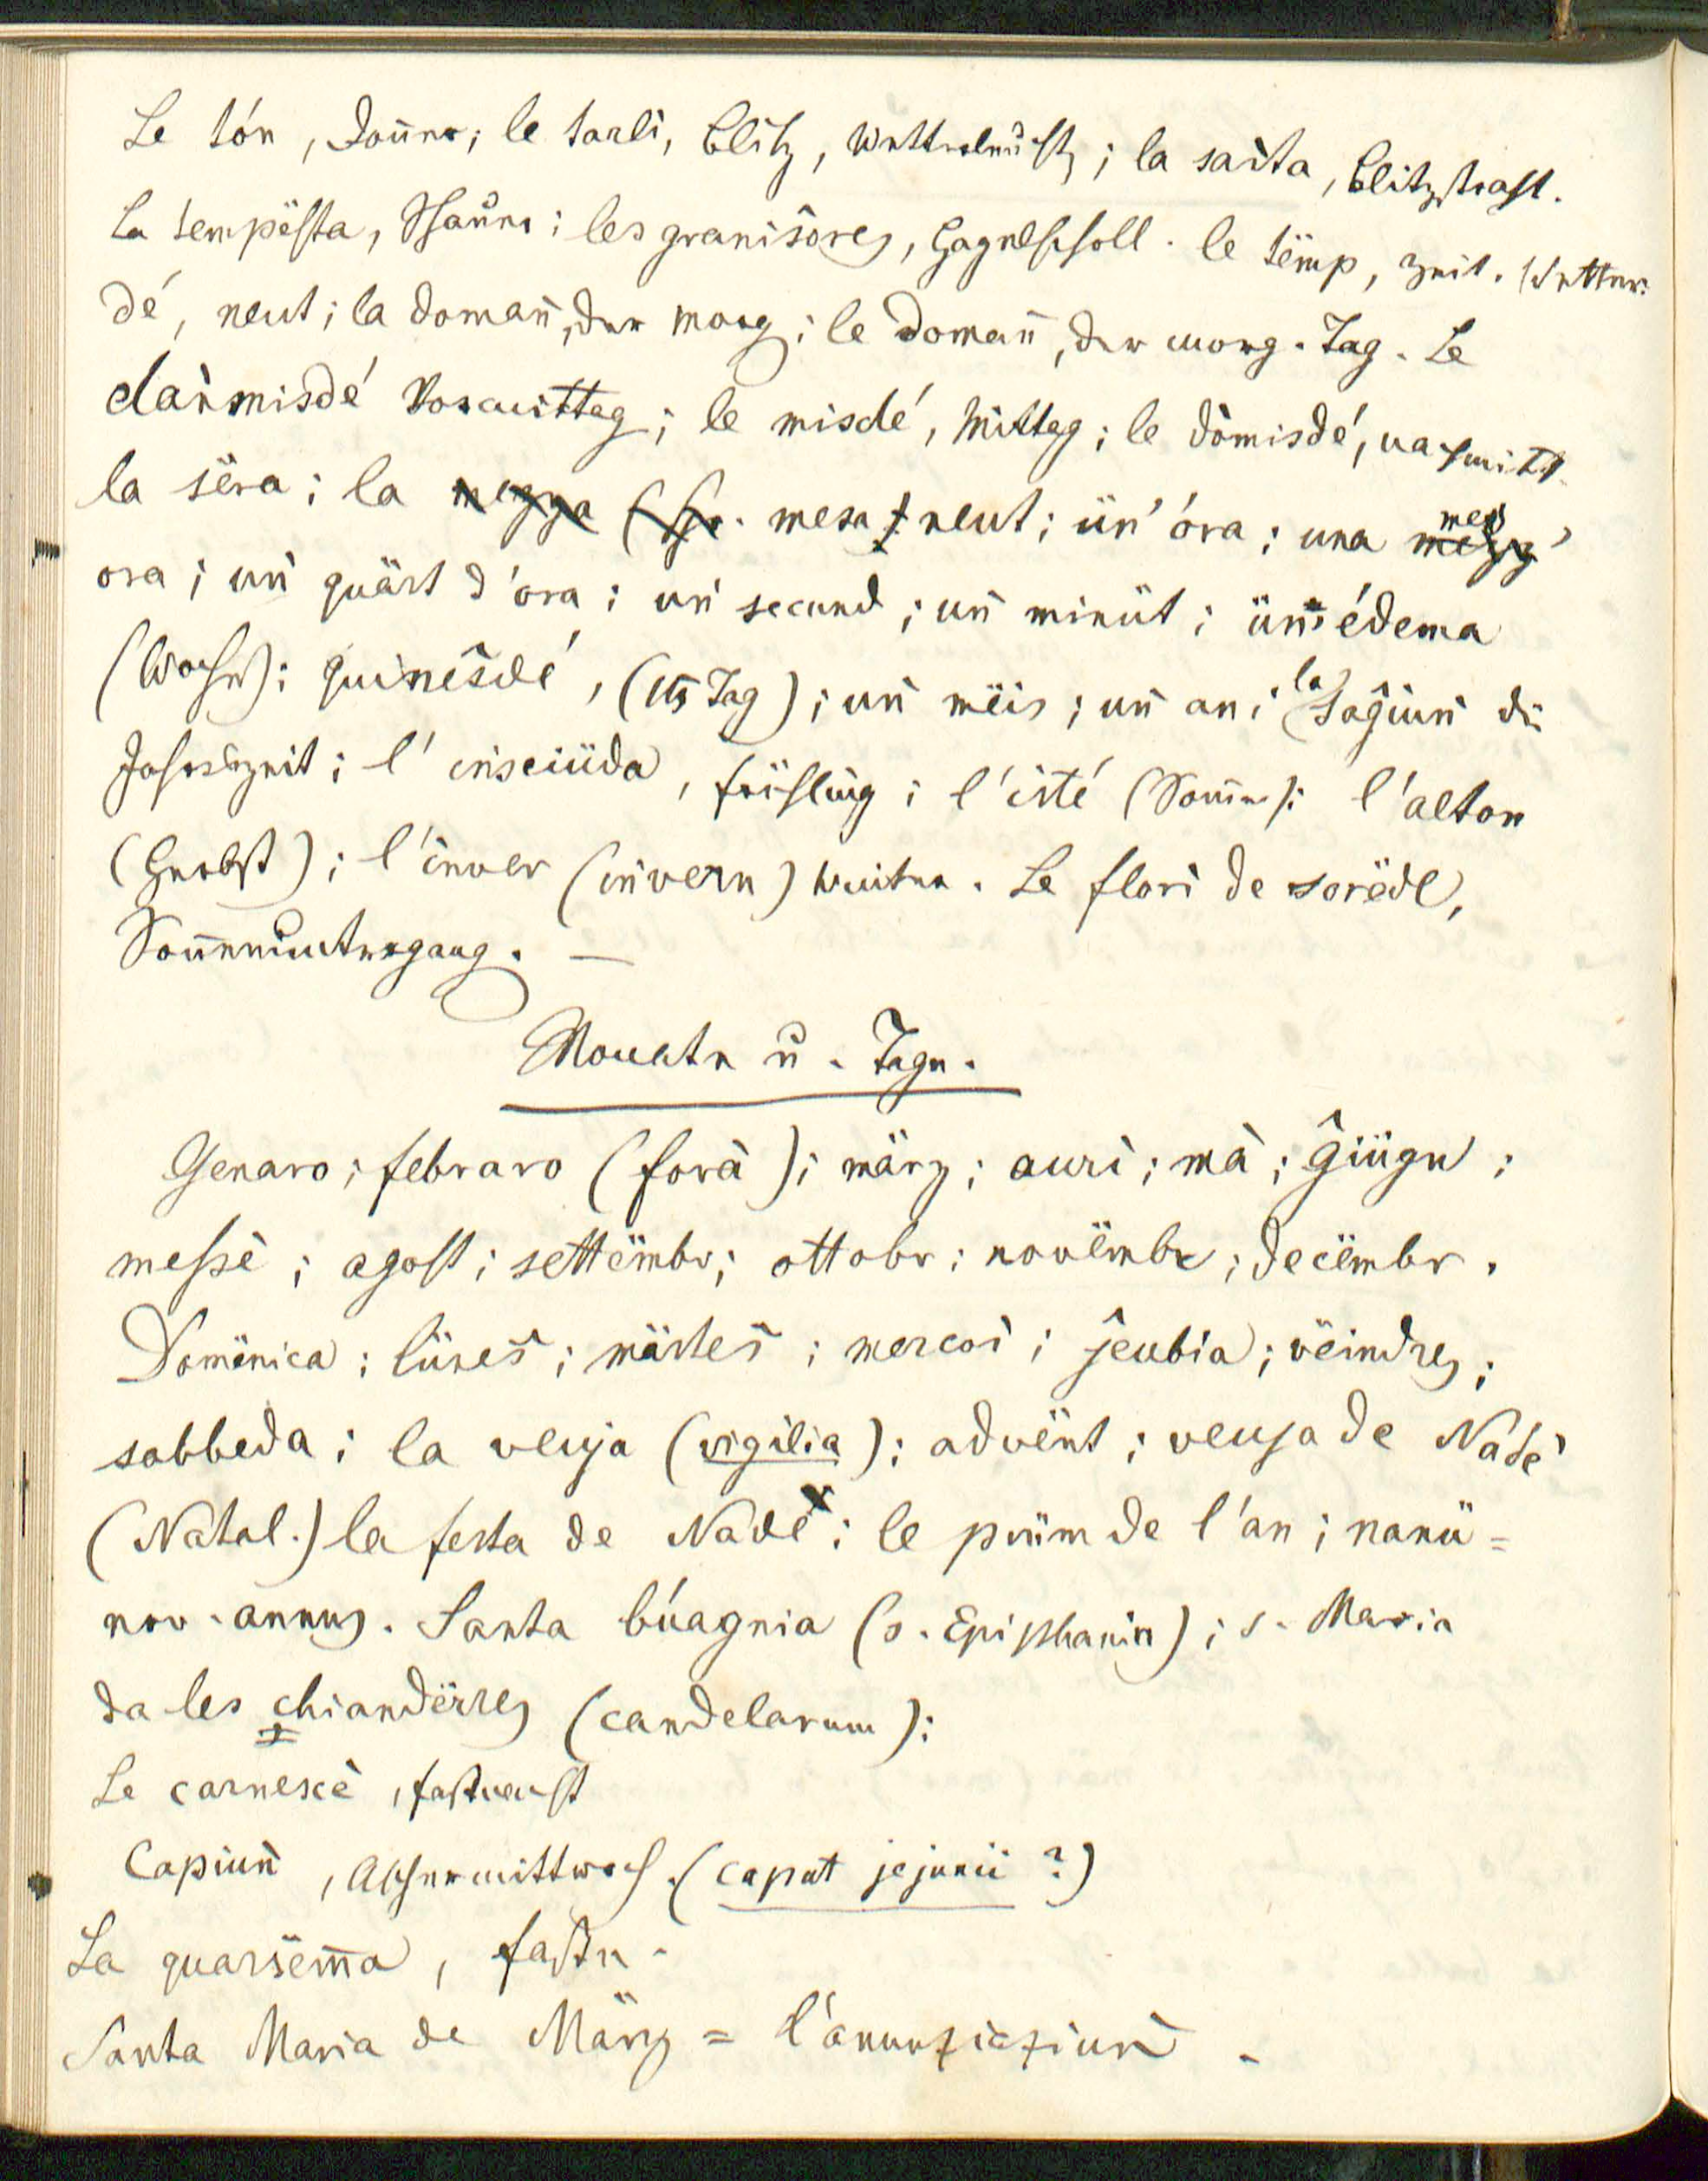 Le tón, Donner; le tarlì, Blitz, Wetterleucht; la saìta, Blitzstrahl.
La tempësta, Schauer; les granisores, Hagel. le tëmp, Zeit. Wetter.
dé, neut; la domañ, der Morg; le domañ, der morg. Tag. Le
dañmisdé Vormittag; le misdé, Mittag; le dòmisdé, nachmitt.
la sëra; la mesa neut; ün' óra; una mes'
ora; uñ quärt d'ora; uñ secund; uñ minüt; ün' édema
(Woche); quinesdé, (15 Tag); uñ mëis; uñ an; la sagiuñ di
Jahreszeit; l' insciüda, Frühling; l'isté (Sommer); l'alton
(Herbst); l'inver (invern) Winter. Le florì de sorëdl,
Sonnenuntergang. —
Monate u. Tage.
Genaro; febraro (forà); märz; aurì; mà; ĝiügn;
messè; agost; settëmbr; ottobr; novëmbr; decëmbr.
Domënica; lünes; märtes; mercoi; jeubia; vëindres;
sabbeda; la veuja (vigilia); advënt; veuja de Nadè
(Natal.) la festa de Nadè; le prüm de l'an; nanü=
nov. annus. Santa búagnia (s. Epiphania); s. Maria
da les chiandërres (candelarum);
Le carnescè, fastnacht
Capiuñ, Aschermittwoch. (caput jejunii ?)
La quarsëma, Fasten.
Santa Maria de März = l'anunziaziuñ.